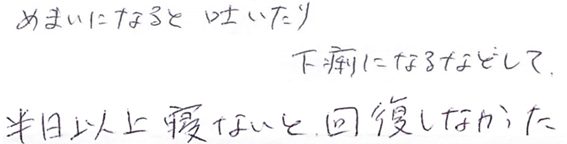 めまいになると 吐いたり
下痢になるなどして、
半日以上寝ないと、回復しなかった